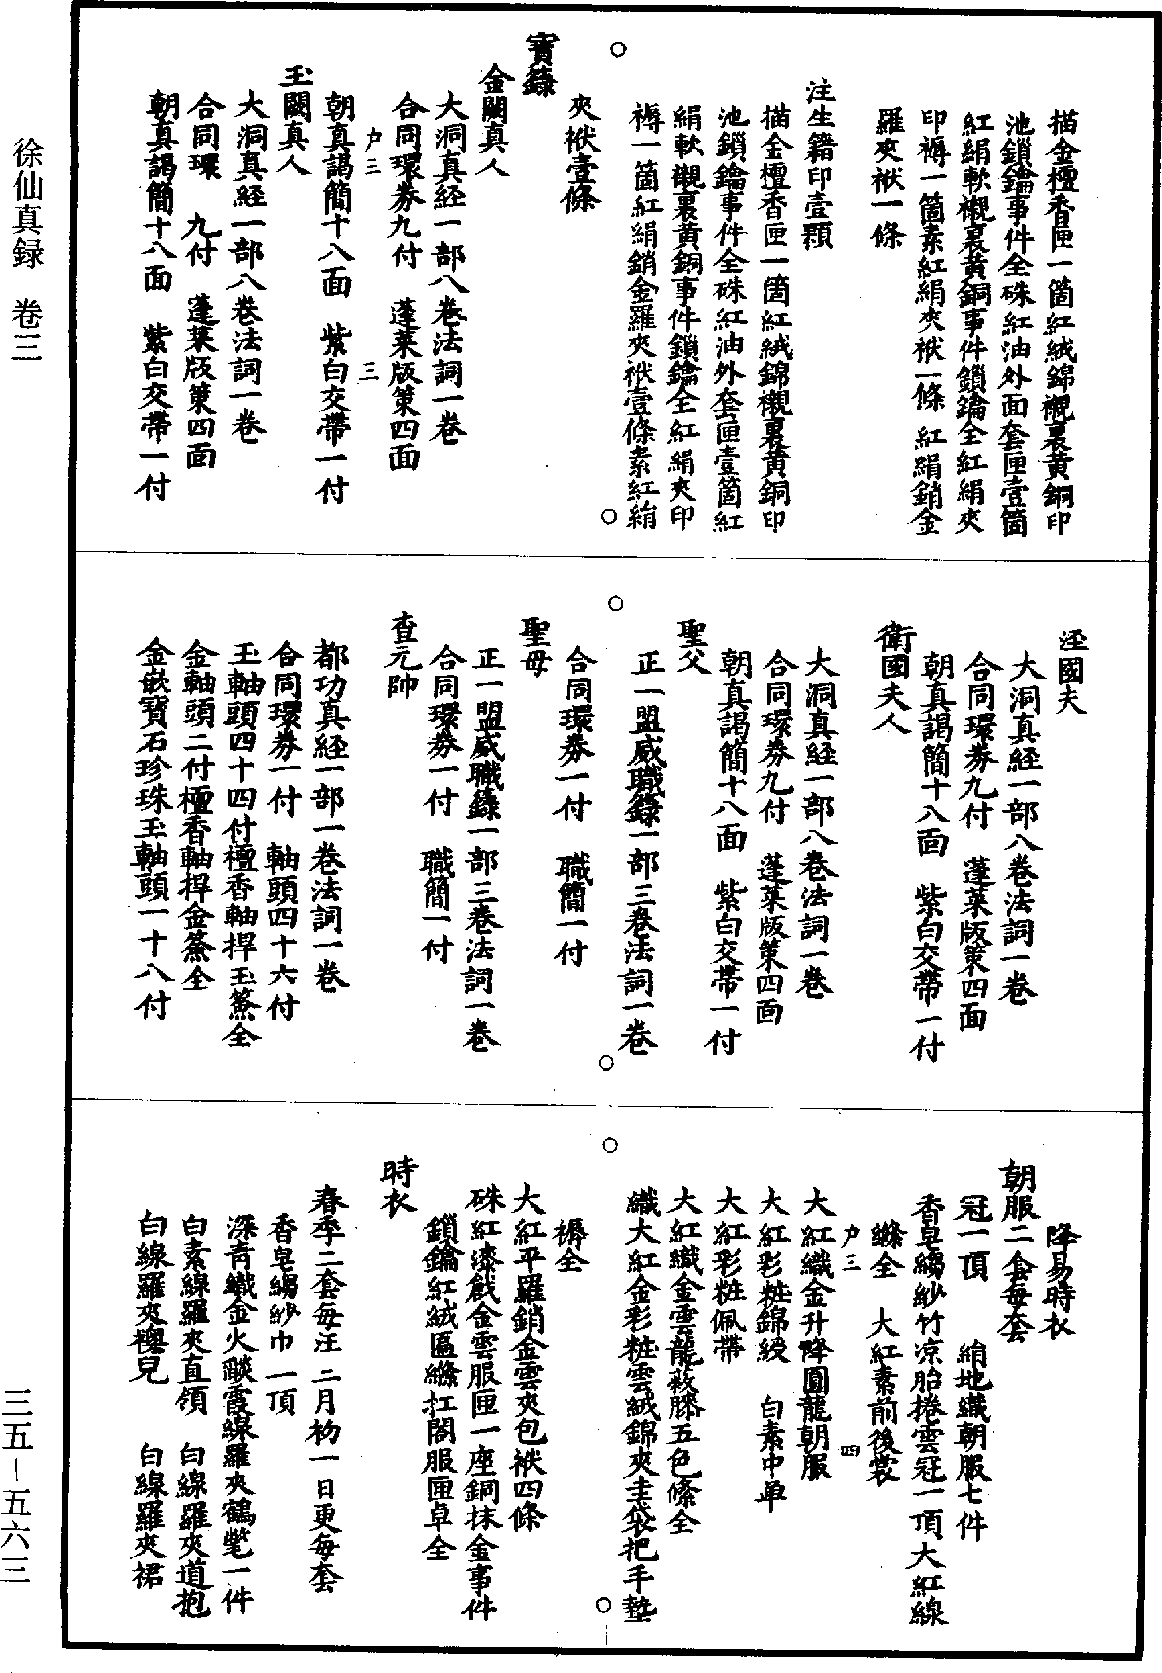 描金檀香匣一箇紅絨錦襯裏黃銅印
池鎖鑰事件全硃紅油外面套匣壹箇
紅絹軟襯裏黃銅事件鎖鑰全紅絹夾
印褥一箇素紅絹夾袱一條紅絹銷金
羅夾袱一條
注生籍印壹顆
描金檀香匣一箇紅絨錦襯裏黃銅印
池鎖鑰事件全硃紅油外套匣壹箇紅
絹軟襯裏黃銅事件鎖鑰全紅絹夾印
褥一箇紅絹銷金羅夾袱壹條素紅絹
夾袱壹條
寶籙
金闕真人
大洞真経一部八卷法詞一卷
合同環券九付 蓬萊版策四面
戶三 三
朝真謁簡十八面 紫白交帶一付
玉闕真人
大洞真経一部八卷法詞一卷
合同環 九付 蓬萊版策四面
朝真謁簡十八面 紫白交帶一付
涇國夫
大洞真経一部八卷法詞一卷
合同環券九付 蓬萊版策四面
朝真謁簡十八面 紫白交帶一付
衛國夫人
大洞真経一部八卷法詞一卷
合同環券九付 蓬萊版策四面
朝真謁簡十八面 紫白交帶一付
聖父
正一盟威職籙一部三卷法詞一卷
合同環券一付 職簡一付
聖母
正一盟威職籙一部三卷法詞一卷
合同環券一付 職簡一付
查元帥
都功真経一部一卷法詞一卷
合同環券一付 軸頭四十六付
玉軸頭四十四付檀香軸桿玉籤全
金軸頭二付檀香軸桿金籤全
金嵌寶石珍珠玉軸頭一十八付
降易時衣
朝服二套每套
冠一頂 絹地織朝服七件
香皂縐紗竹凉胎捲雲冠一頂大紅線
縧全 大紅素前後裳
戶三 四
大紅織金升降圓龍朝服
大紅彩粧錦綬 白素中单
大紅彩粧佩帶
大紅織金雲龍蔽膝五色縧全
織大紅金彩粧雲絨錦夾圭袋把手墊
褥全
大紅平羅銷金雲夾包袱四條
硃紅漆戧金雲服匣一座銅抹金事件
鎖鑰紅絨匾縧扛閣服匣卓全
時衣
春季二套每汪 二月初一日更每套
香皂縐紗巾一頂
深青織金火燄霞線羅夾鶴氅一件
白素線羅夾直領 白線羅夾道抱
白線羅夾𧞫兒 白線羅夾裙
徐仙真録 卷三
三五—五六三